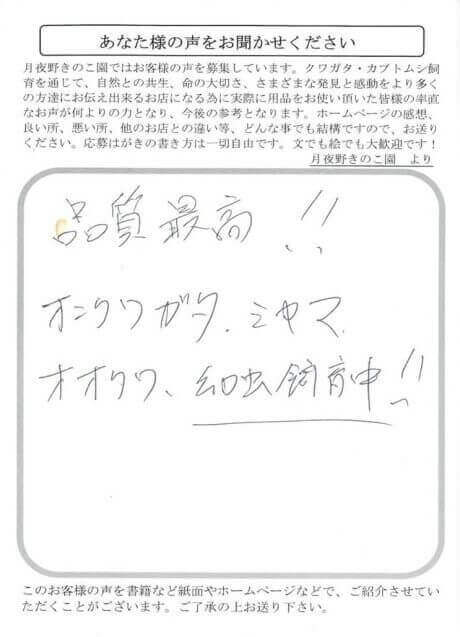 あなた様の声をお聞かせください
月夜野きのこ園ではお客様の声を募集しています。クワガタ・カブトムシ飼
育を通じて、自然との共生、命の大切さ、さまざまな発見と感動をより多く
の方達にお伝え出来るお店になる為に実際に用品をお使い頂いた皆様の率直
なお声が何よりの力となり、今後の参考となります。ホームページの感想、
良い所、悪い所、他のお店との違い等、どんな事でも結構ですので、お送り
ください。応募はがきの書き方は一切自由です。文でも絵でも大歓迎です！
月夜野きのこ園　より
品質最高!!
オニクワガタ.ミヤマ.
オオクワ、幼虫飼育中!!
このお客様の声を書籍など紙面やホームページなどで、ご紹介させてい
ただくことがございます。ご了承の上お送り下さい。